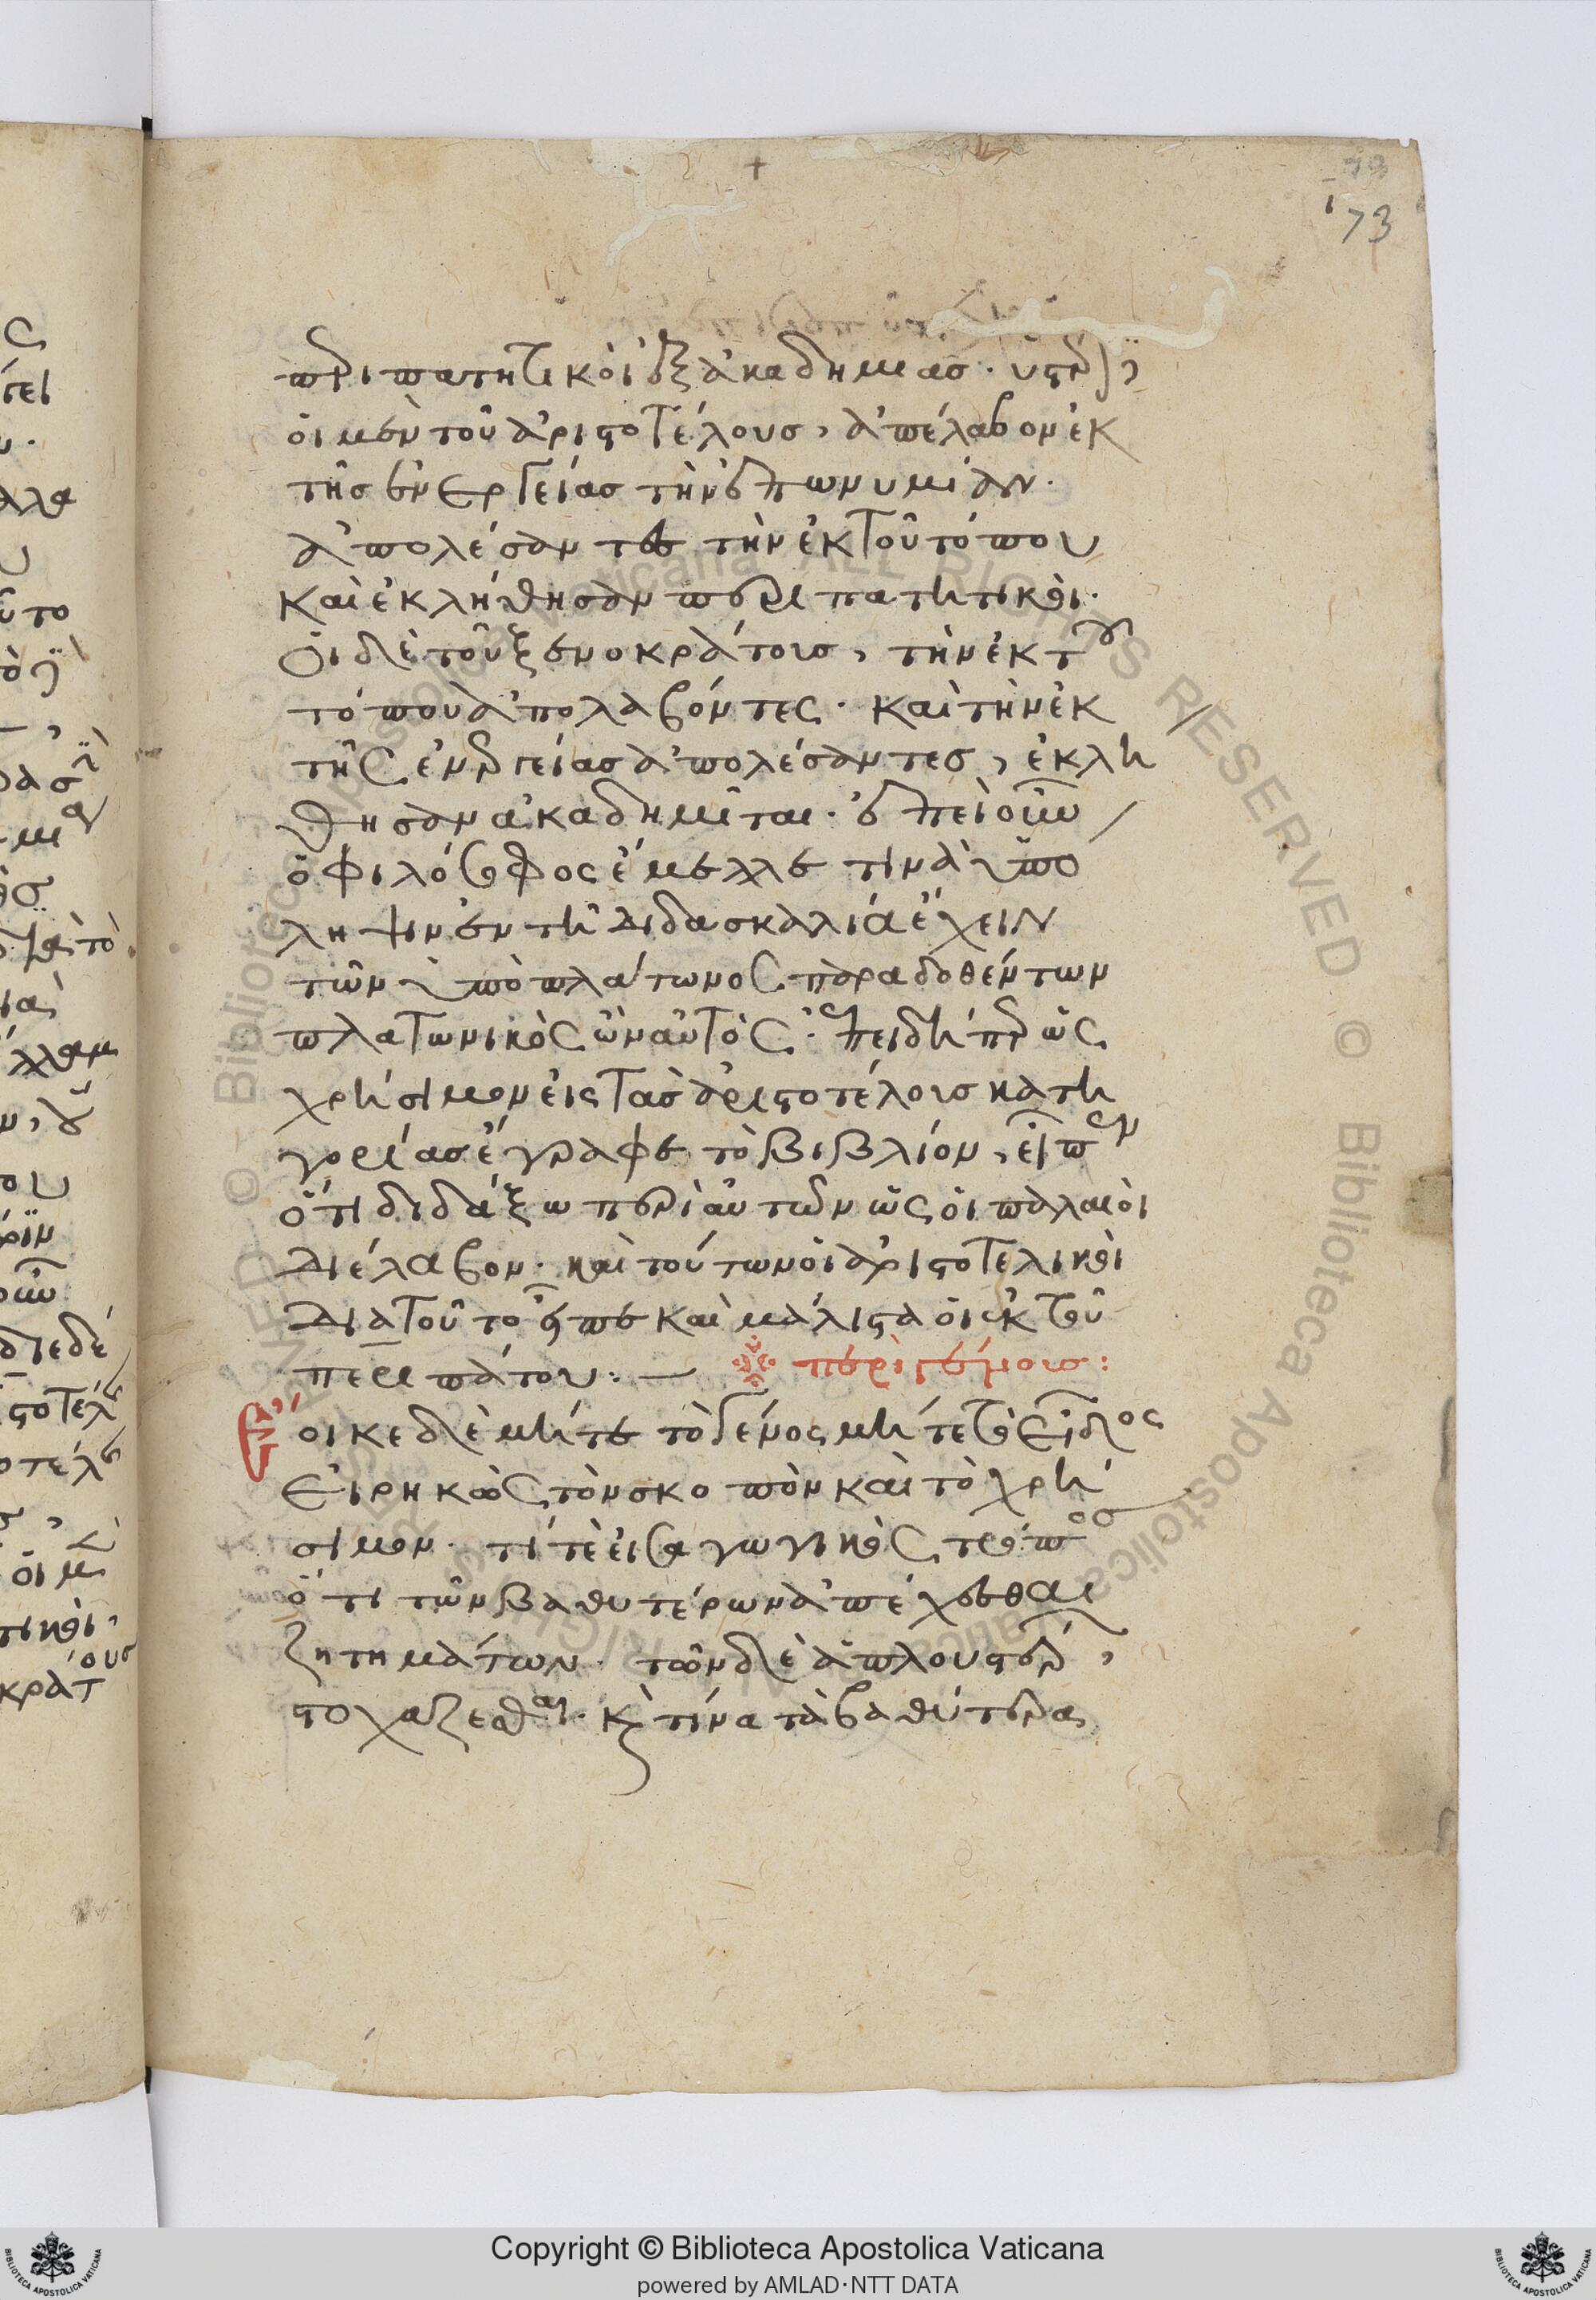 73
περιπατητικοὶ ἐξ ἀκαδημίας. ὕστερον
οἱ μὲν τοῦ ἀριστοτέλους, ἀπέλαβον ἐκ
τῆς ἐνεργείας τὴν ἐπωνυμίαν.
ἀπολέσαντες τὴν ἐκ τοῦ τόπου
καὶ ἐκλήθησαν περιπατητικοί.
Οἱ δὲ τοῦ ξενοκράτους, τὴν ἐκ τοῦ
τόπου ἀπολαβόντες. καὶ τὴν ἐκ
τῆς ἐνεργείας ἀπολέσαντες, ἐκλή
θησαν ἀκαδημῖται. ἐπεὶ οὖν
ὁ φιλόσοφος ἔμελλε τινὰ ὑπό
ληψιν ἐν τῆ διδασκαλία ἔχειν
τῶν ὑπὸ πλάτωνος παραδοθέντων
πλατωνικὸς ὢν αὐτός. ἐπειδήπερ ὡς
χρήσιμον εἰς τὰς ἀριστοτέλους κατη
γορίας ἔγραφε τὸ βιβλίον, εἶπεν
ὅτι διδάξω περὶ αὐτῶν ὡς οἱ παλαιοὶ
διέλαβον. καὶ τούτων οἱ ἀριστοτελικοὶ
διατοῦτο εἶπε καὶ μάλιστα οἱ ἐκ τοῦ
περιπάτου: — περὶ γένους:
Ἔοικε δὲ μήτε τὸ γένος μήτε τὸ εἶδος
Εἰρηκὼς τὸν σκοπὸν καὶ τὸ χρή
σιμον. τί τε εἰσαγωγικὸς τρόπος
ὅτι τῶν βαθυτέρων ἀπέχεσθαι
ζητημάτων. τῶν δὲ ἁπλουστέρων,
στοχάζεσθαι. καὶ τίνα τὰ βαθύτερα
Copyright © Biblioteca Apostolica Vaticana
powered by AMLAD·NTT DATA